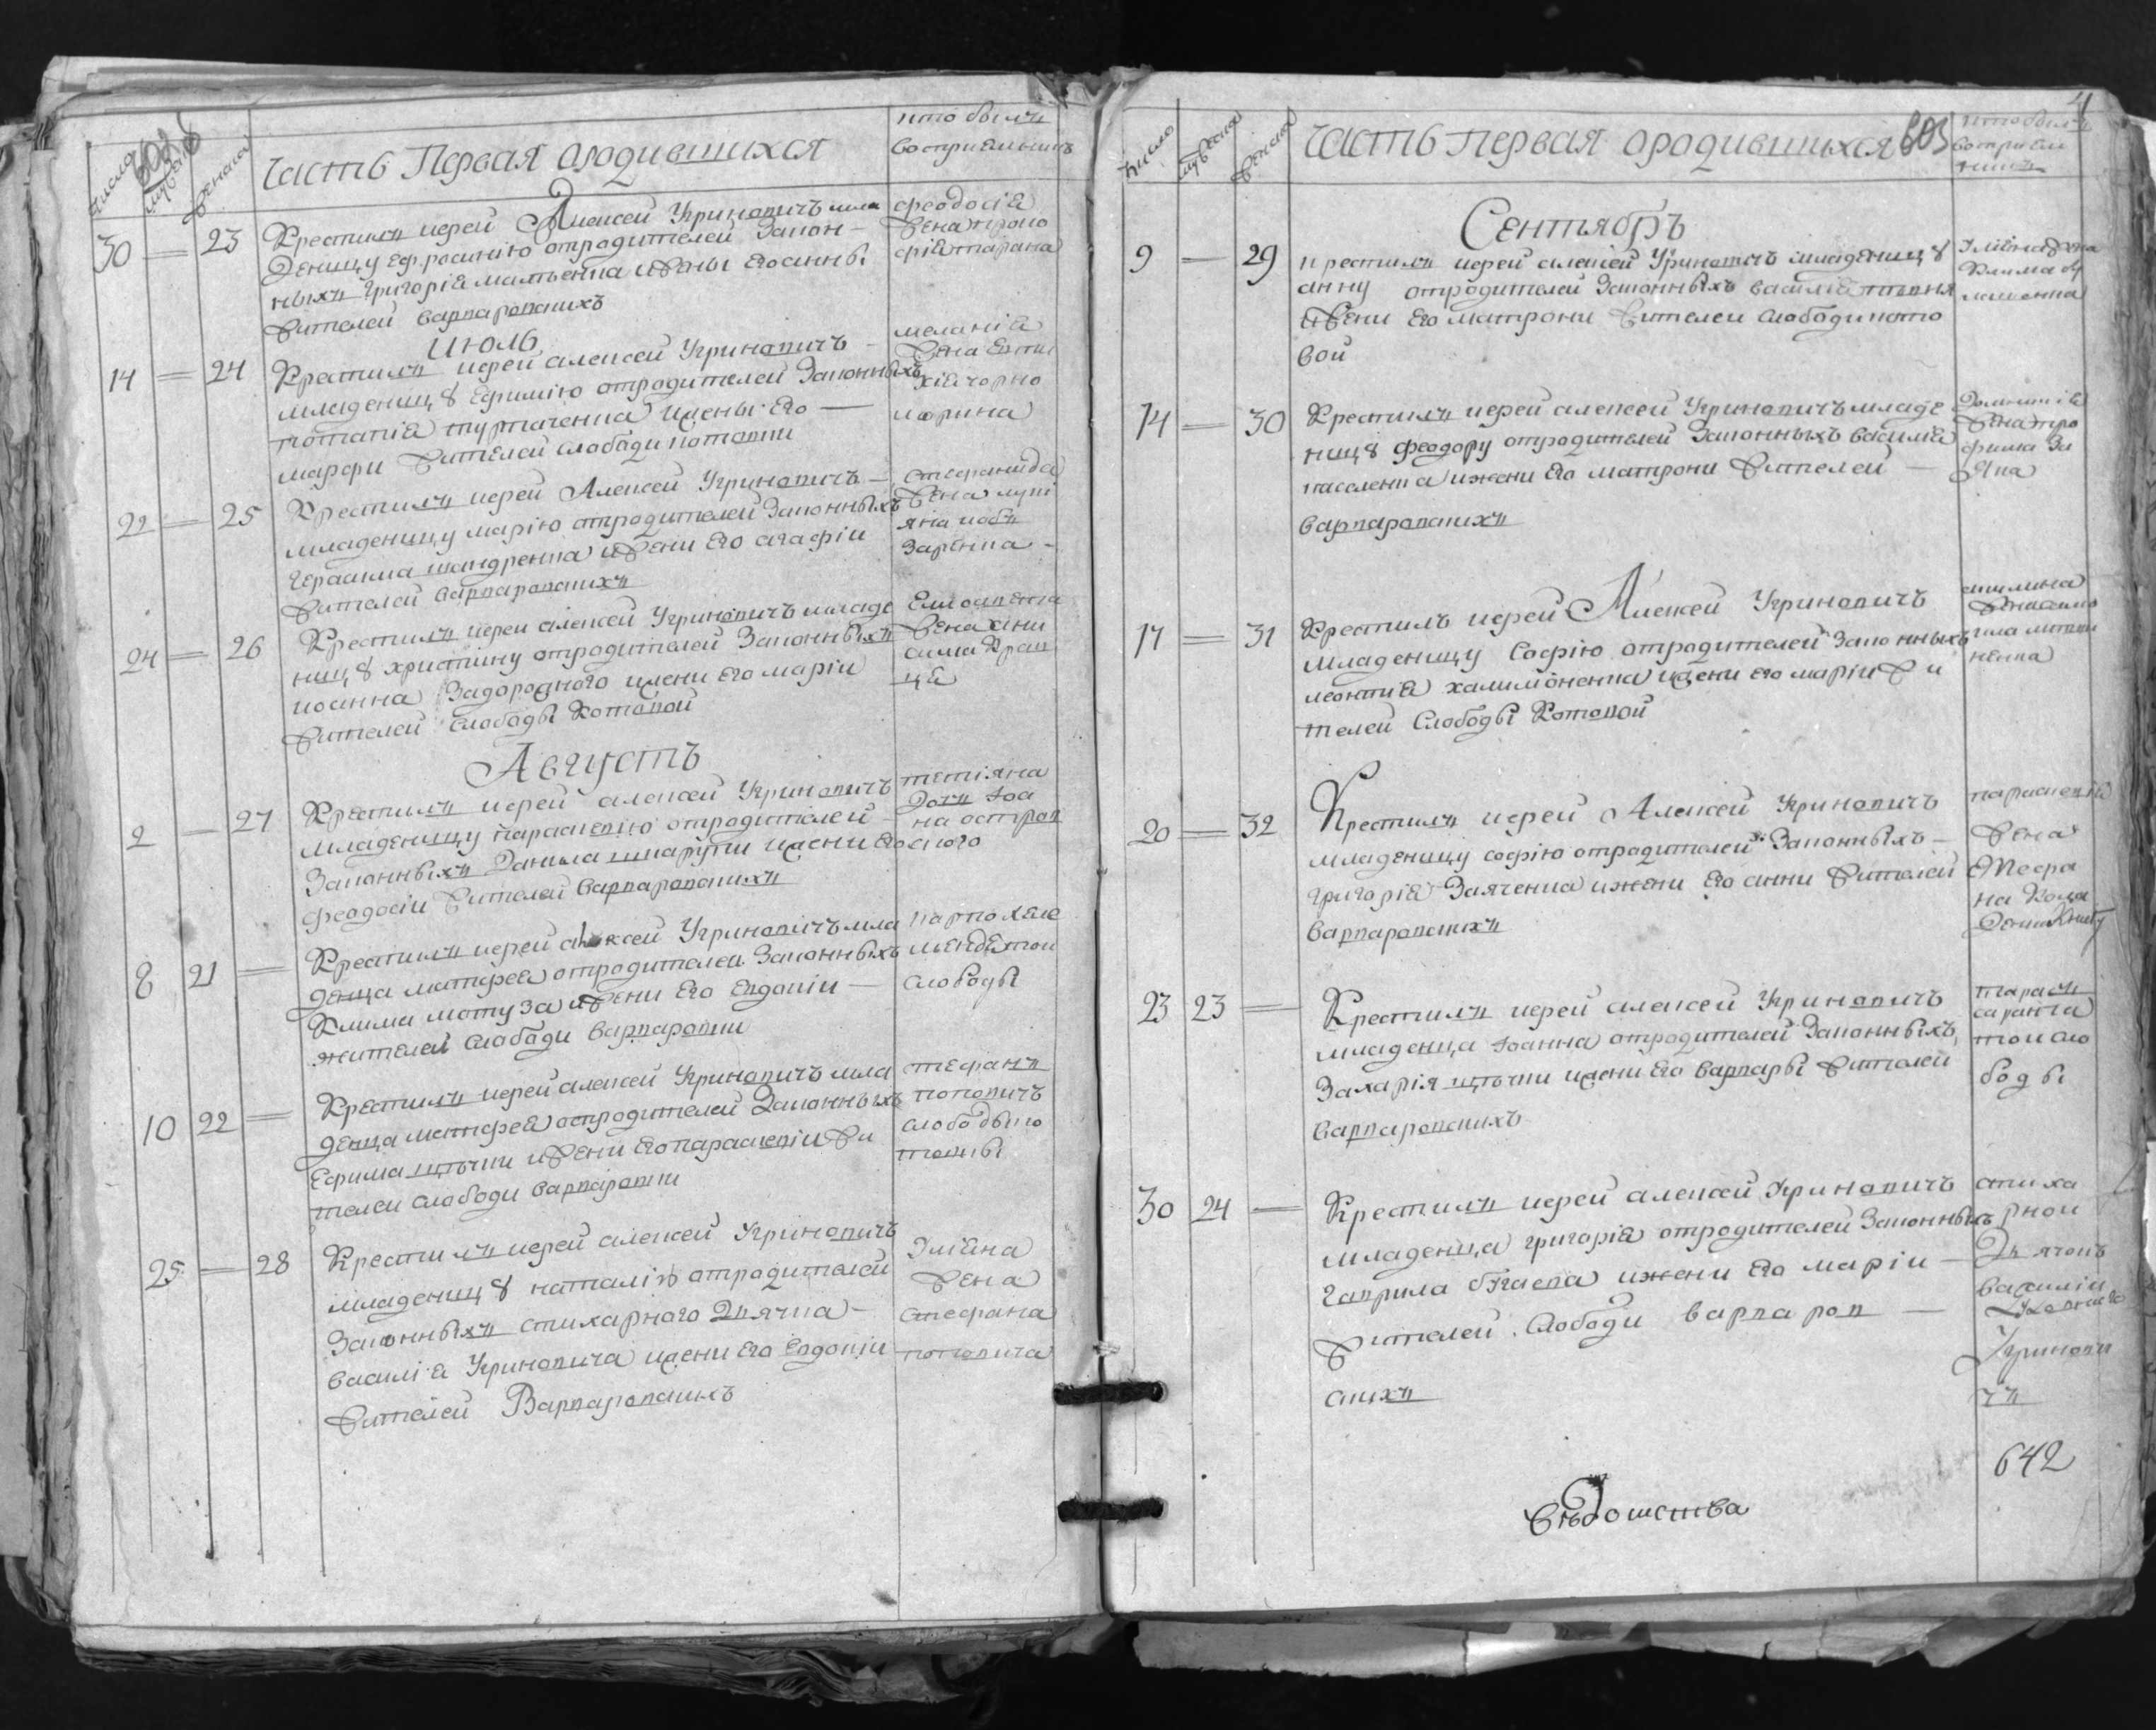 602
число
мужеска
женска
Часть Первая ородившихся
кто былъ
восприемникъ
30 — 23
Крестилъ иерей Алексей Угриновичъ мла
деницу Ефросинію отродителей Закон-
ныхъ Григорія матвенка ижены Егоанны
жителей варваровскихъ
феодосія
жена проко
фіятарана
Июль
14 — 24
Крестилъ иерей алексей Угриновичъ -
младеницꙋ Ефимію отродителей Законныхъ
потапія туркаченка ижены Его —
марфи жителей слободи котовки
меланія
жена Евти
хіячорно
иорина
22 — 25
Крестилъ иерей Алексей Угриновичъ -
младеницу марію отродителей Законныхъ
герасима шандренка ижени Его агафіи
жителей варваровскихъ
стефанида
жена луки
яна кобъ
заренка -
24 — 26
Крестилъ иерей алексей Угриновичъ младе
ницꙋ христину отродителей Законныхъ
иоанна Задорожного ижени Его маріи
жителей слободы Котовой
жена Они
сима Крав
ця
Августъ
2 — 27
Крестилъ иерей алексей Угриновичъ
младеницу параскевію отродителей -
Законныхъ Данила шкарупи ижени Его
феодосіи жителей варваровскихъ
тетіяна
дочъ Іоа
на остров
ского
8 21 —
Крестилъ иерей алексей Угриновичъ мла
денца матфея отродителей Законныхъ
Клима мотуза ижени Его Евдокіи —
жителей слободи варваровки
карпо
той
слободы
10 22 —
Крестилъ иерей алексей Угриновичъ мла
денца матфея отродителей Законныхъ
Ефима щочки ижени Егопараскевіи жи
телей слободи варваровки
стефанъ
поповичъ
слободы ко
товки
25 — 28
Крестилъ иерей алексей Угриновичъ
младеницꙋ наталію отродителей
Законныхъ стихарного Дячка -
василія Угриновича ижени Его Евдокіи
жителей Варваровскихъ
Уліяна
жена
стефана
поповича
603
число
мужеска
женска
Часть Первая ородившихся
кто былъ
восприем
никъ
Сентябръ
9 — 29
крестилъ иерей алексей Угриновичъ младеницꙋ
анну отродителей Законныхъ василія
ижени Его матрони жителей слободи кото
вой
Уліяна жена
Клима
14 — 30
Крестилъ иерей алексей Угриновичъ младе
ницꙋ феодору отродителей Законныхъ василія
киселенка ижени Его матрони жителей —
варваровскихъ
жена тро
фима За
17 — 31
Крестилъ иерей Алексей Угриновичъ
младеницу Софію отродителей Законныхъ
леонтія халимоненка ижени Его маріи жи
телей слободы Котовой
акилина
20 — 32
Крестилъ иерей Алексей Угриновичъ
младеницу софію отродителей Законныхъ -
григорія Заяченка ижени Его анни жителей
варваровскихъ
параскевія
жена
Стефа
на
23 23 —
Крестилъ иерей алексей Угриновичъ
младенца Іоанна отродителей Законныхъ
Захарія щочки ижени Его варвары жителей
варваровскихъ
тарасъ
саранча
той сло
боды
30 24 —
Крестилъ иерей алексей Угриновичъ
младенца григорія отродителей Законныхъ
гаврила бꙋгаева ижени Его маріи —
жителей слободи варваров —
скихъ
стиха
рной
Дячокъ
василій
Угринови
чъ
642
Вѣдомства